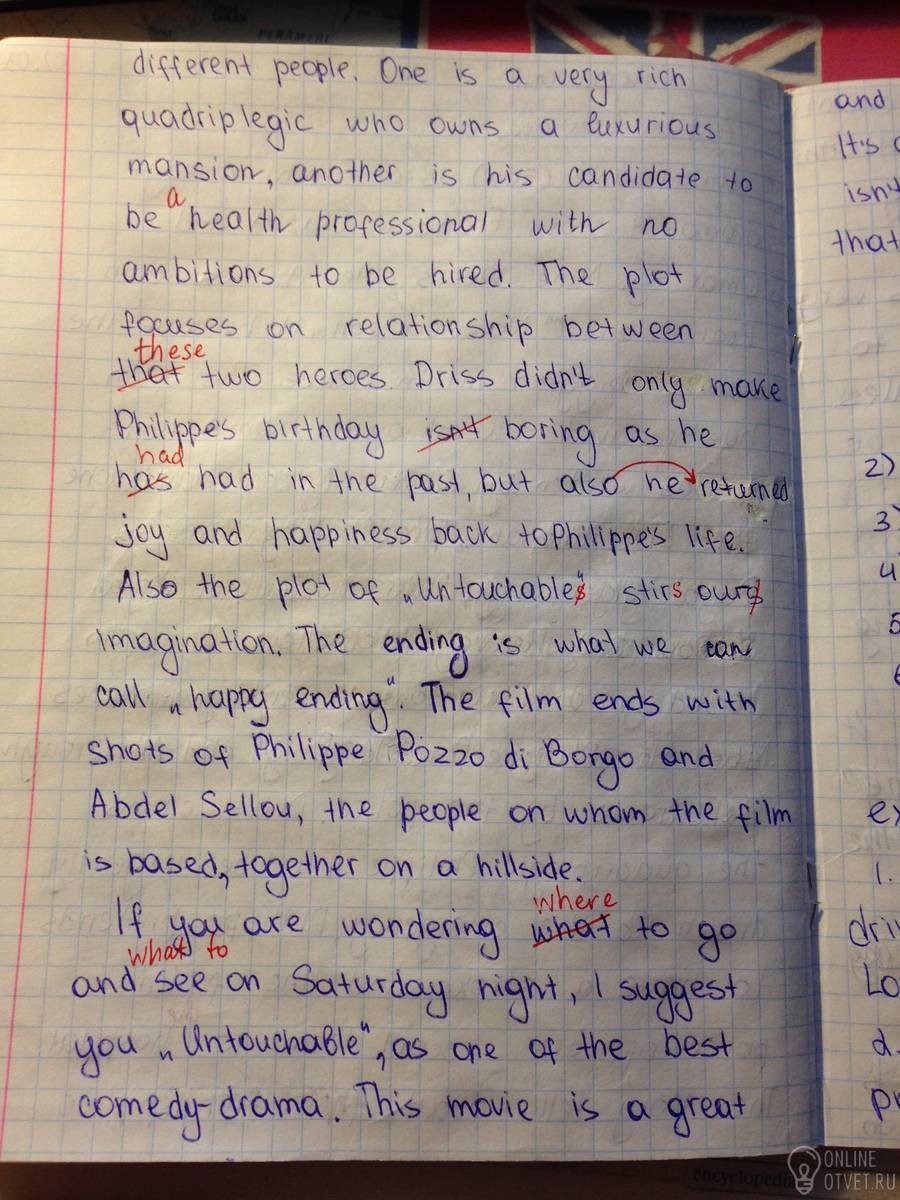 different people. One is a very rich
quadriplegic who owns a luxurious
mansion, another is his candidate to
a
be health professional with no
ambitions to be hired. The plot
focuses on relationship between
these
that two heroes. Driss didn't only make
Philippe's birthday isn't boring as he
had
has had in the past, but also he returned
joy and happiness back to Philippe's life.
Also the plot of „Untouchable"s stirs ours
imagination. The ending is what we can
call „happy ending". The film ends with
shots of Philippe Pozzo di Borgo and
Abdel Sellou, the people on whom the film
is based, together on a hillside.
where
If you are wondering what to go
what to
and see on Saturday night, I suggest
you „Untouchable", as one of the best
comedy-drama. This movie is a great
and
It's
isn't
that
2)
3)
4
5
6
1.
d.
encyclopedia
ONLINE
OTVET.RU